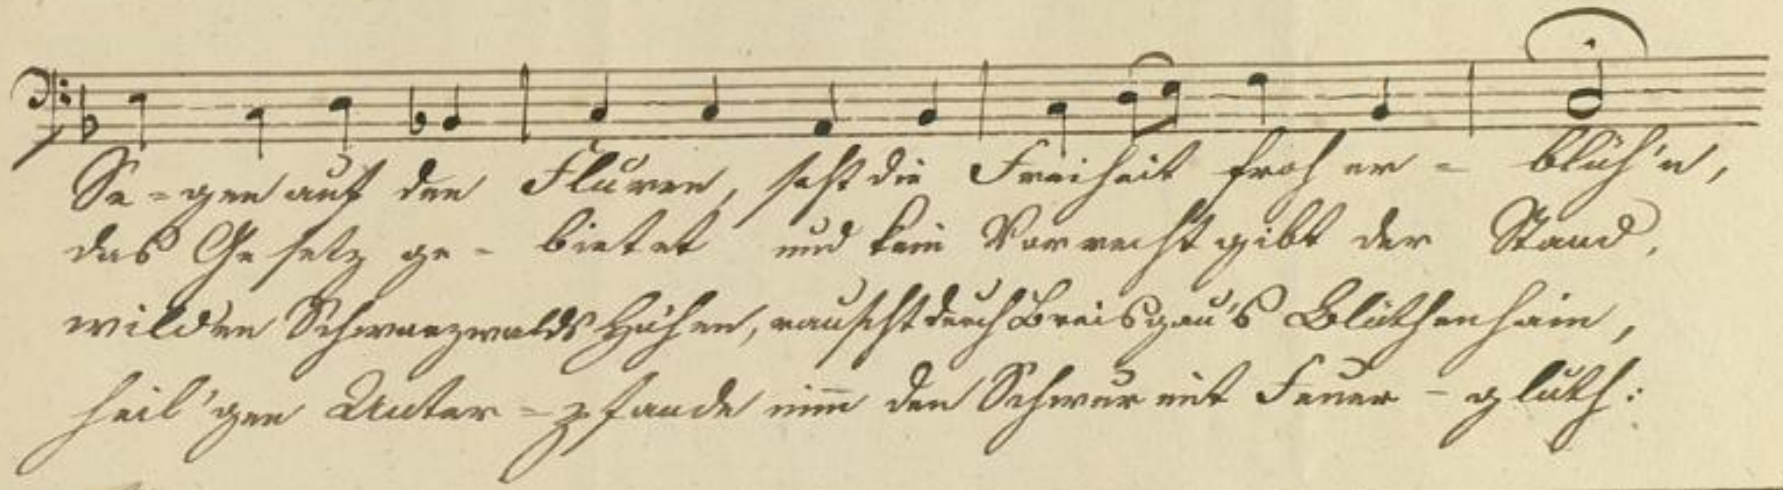 Se-gen auf den Fluren, seht die Freiheit froh er- blüh'n,
das Gesetz ge- bietet und kein Vorrecht gibt der Stand,
wilden Schwarzwalds Höhen, rauscht durch Breisgau's Blüthenhain,
heil'gen Unter-pfande nim̅ den Schwur mit Feuer-gluth: